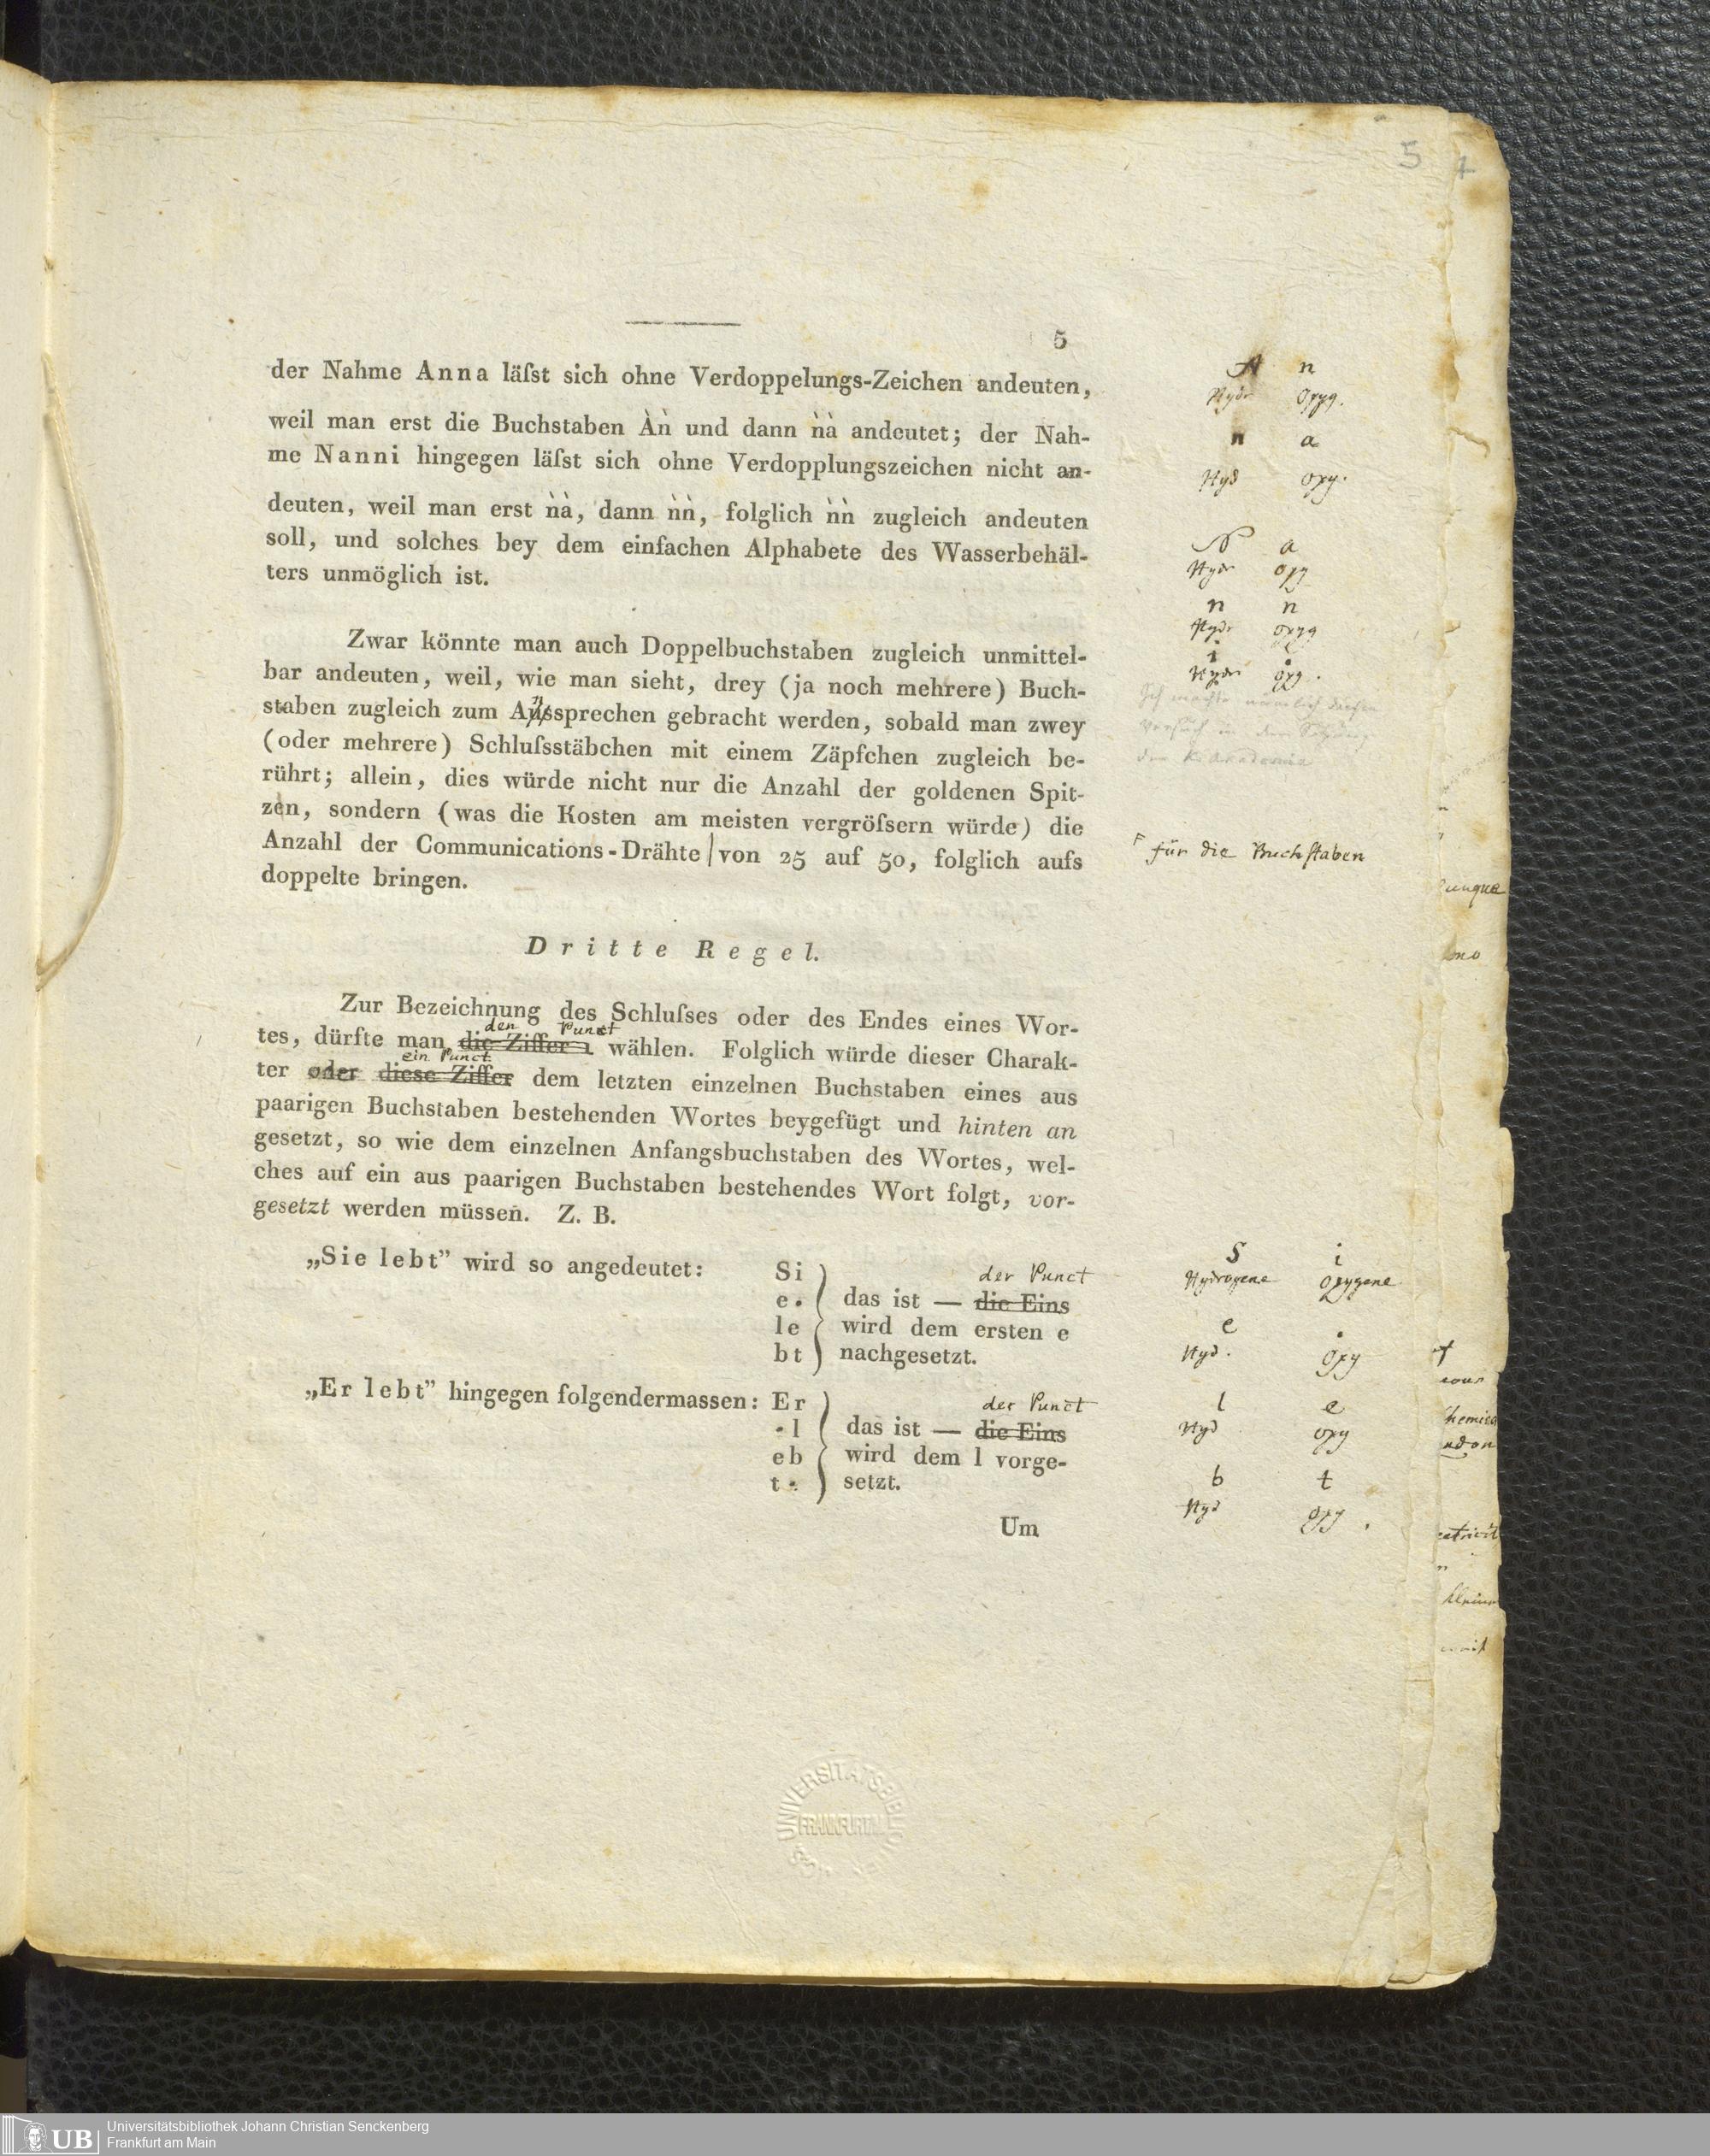 5 4
5
der Nahme Anna läſst sich ohne Verdoppelungs-Zeichen andeuten,
weil man erst die Buchstaben Àǹ und dann ǹà andeutet; der Nah-
me Nanni hingegen läſst sich ohne Verdopplungszeichen nicht an-
deuten, weil man erst ǹà, dann ǹǹ, folglich ǹǹ zugleich andeuten
soll, und solches bey dem einfachen Alphabete des Wasserbehäl-
ters unmöglich ist.
Zwar könnte man auch Doppelbuchstaben zugleich unmittel-
bar andeuten, weil, wie man sieht, drey (ja noch mehrere) Buch-
staben zugleich zum Aussprechen gebracht werden, sobald man zwey
(oder mehrere) Schluſsstäbchen mit einem Zäpfchen zugleich be-
rührt; allein, dies würde nicht nur die Anzahl der goldenen Spit-
zen, sondern (was die Kosten am meisten vergröſsern würde) die
Anzahl der Communications-Drähte von 25 auf 50, folglich aufs
doppelte bringen.
Dritte Regel.
Zur Bezeichnung des Schluſses oder des Endes eines Wor-
den Punct
tes, dürfte man die Ziffer 1 wählen. Folglich würde dieser Charak-
ein Punct
ter oder diese Ziffer dem letzten einzelnen Buchstaben eines aus
paarigen Buchstaben bestehenden Wortes beygefügt und hinten an
gesetzt, so wie dem einzelnen Anfangsbuchstaben des Wortes, wel-
ches auf ein aus paarigen Buchstaben bestehendes Wort folgt, vor-
gesetzt werden müssen. Z. B.
„Sie lebt” wird so angedeutet: Si
der Punct
e. das ist — die Eins
le wird dem ersten e
bt nachgesetzt.
„Er lebt” hingegen folgendermassen: Er
der Punct
.l das ist — die Eins
eb wird dem l vorge-
t. setzt.
Um
A n
Hydr Oxyg.
n a
Hyd oxy.
N a
Hydr oxy
n n
Hydr oxyg
i .
Hydr oxy.
Ich machte nämlich diesen
Versuch in der Sitzung
der K. Academie
für die Buchstaben
S i
Hydrogene Oxygene
e .
Hyd. Oxy
l e
Hyd oxy
b t
Hyd oxy.
UNIVERSITÄTSBIBLIOTHEK
FRANKFURT
UB
Universitätsbibliothek Johann Christian Senckenberg
Frankfurt am Main